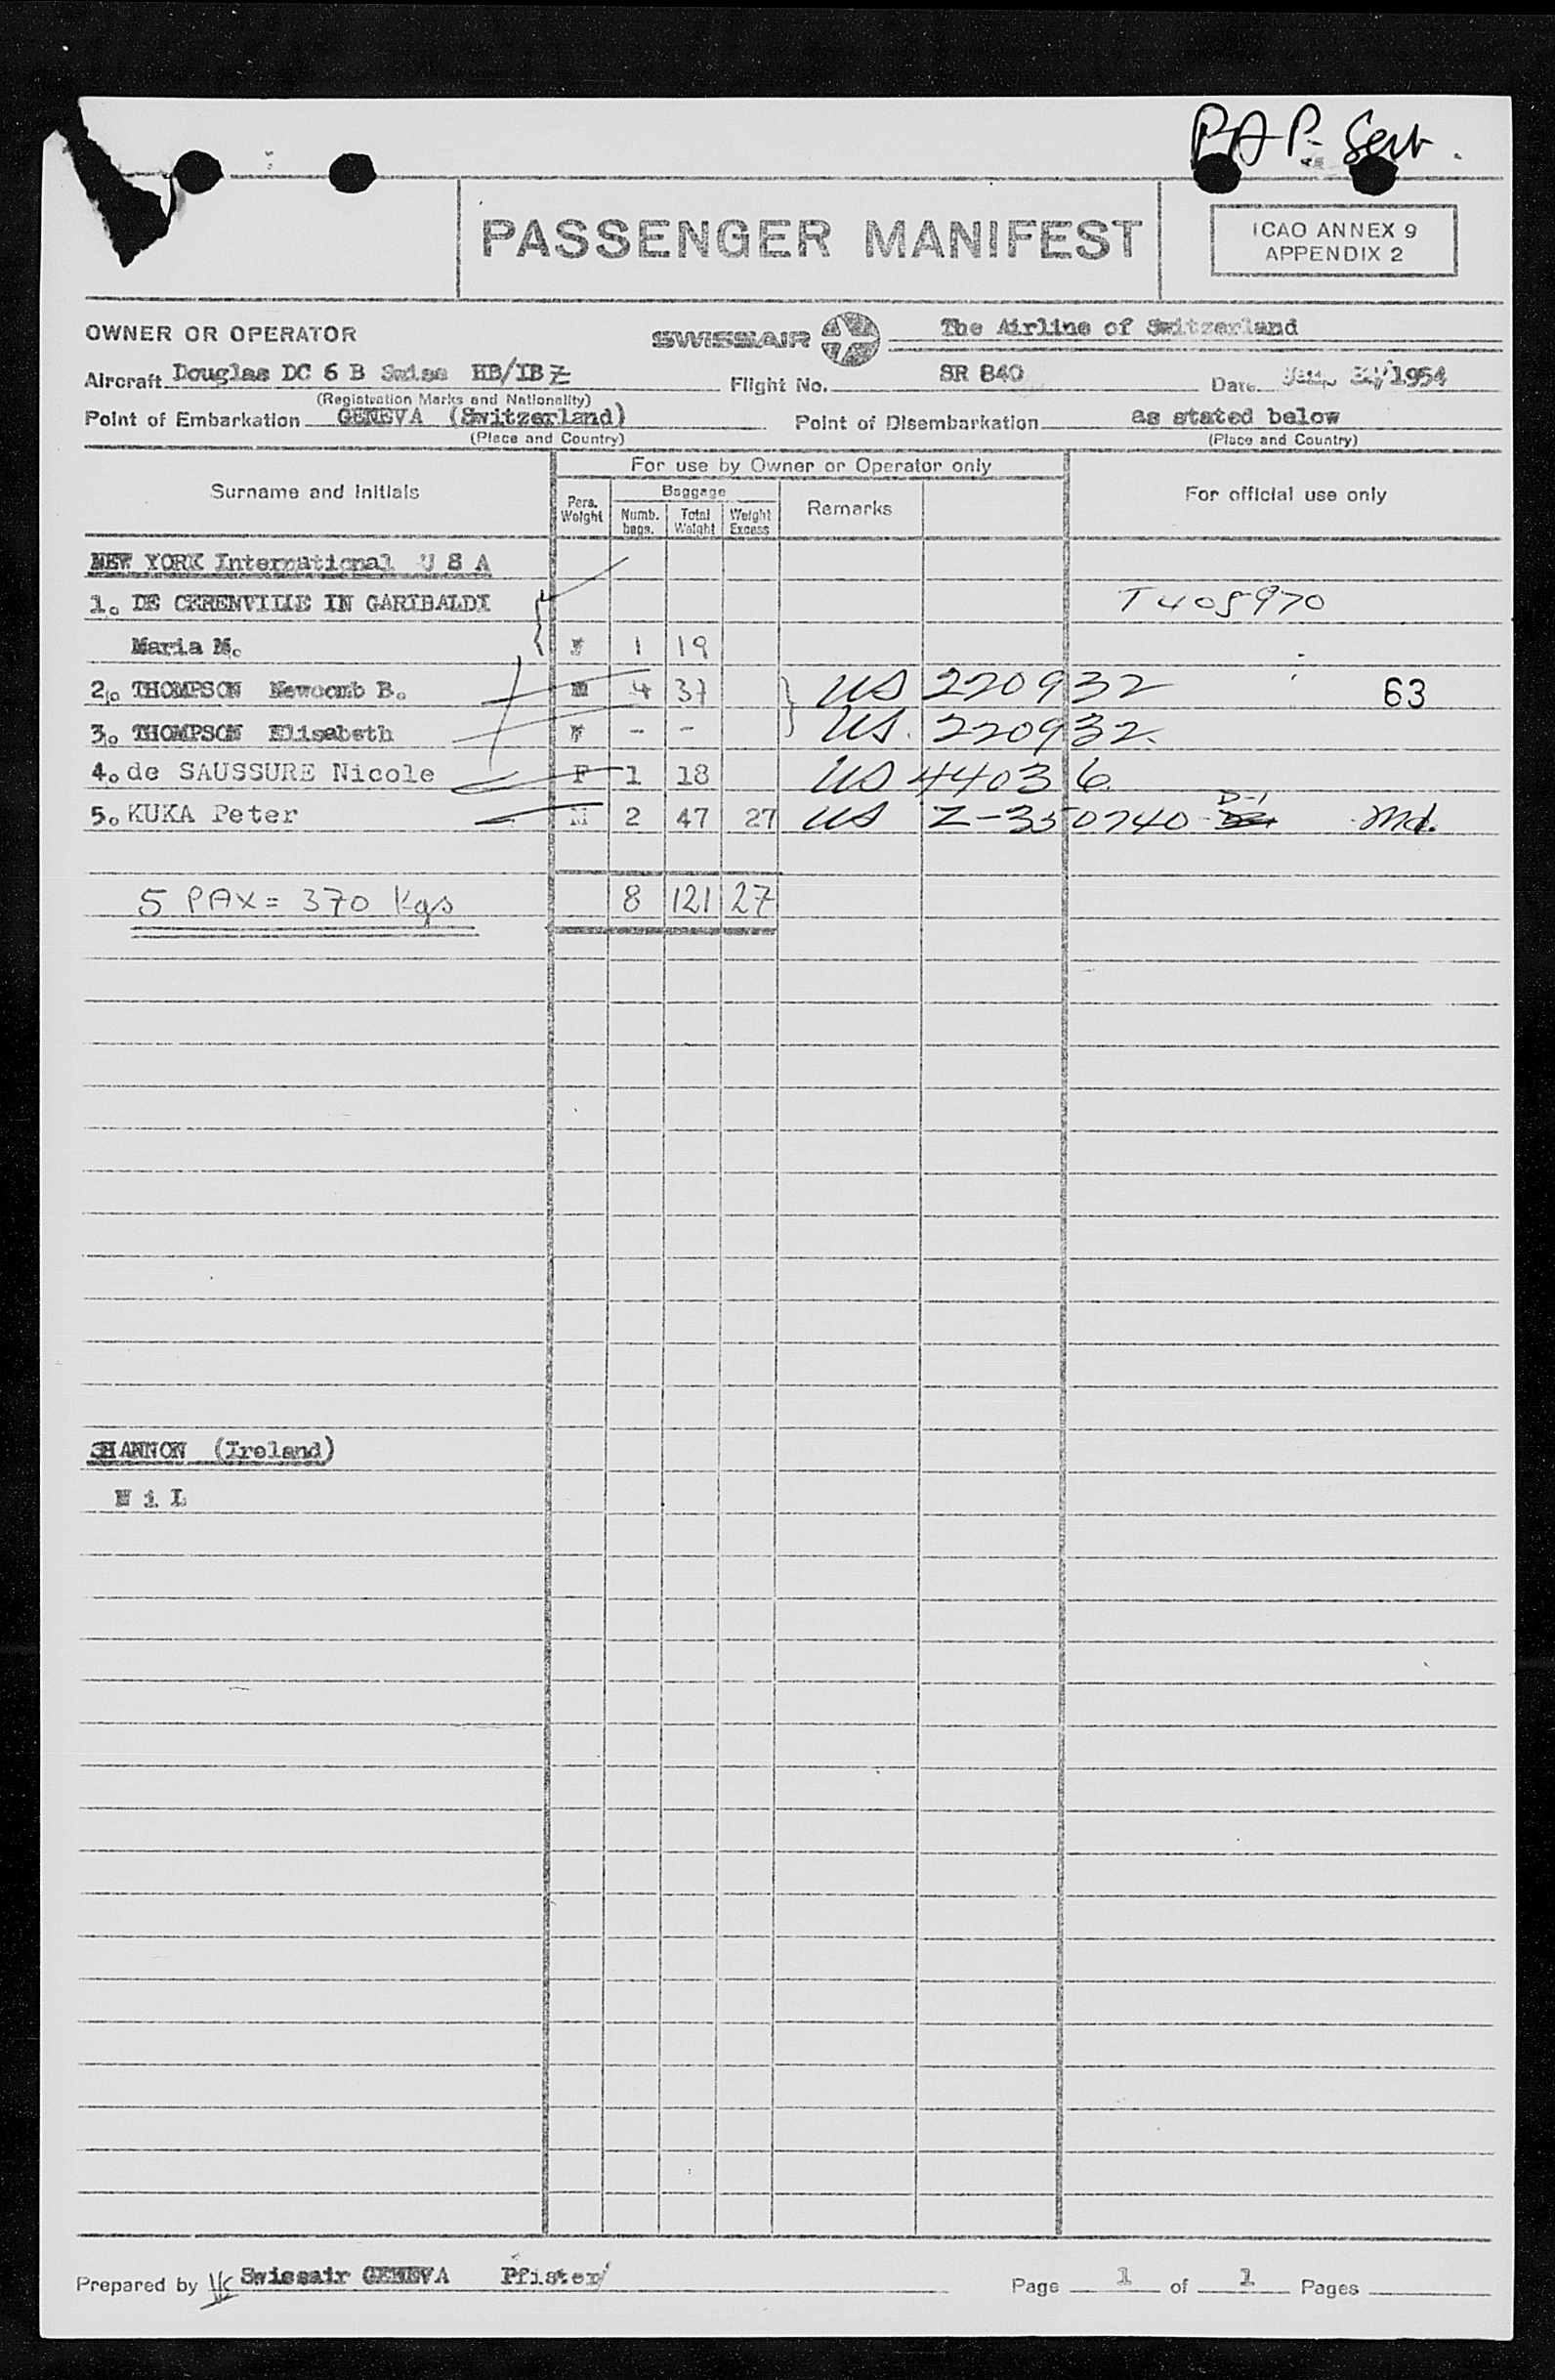 PAP- Sent.
PASSENGER MANIFEST
ICAO ANNEX 9
APPENDIX 2
OWNER OR OPERATOR SWISSAIR The Airline of Switzerland
Aircraft Douglas DC 6 B Swiss HB/IB Z Flight No. SR 840 Date 1954
(Registration Marks and Nationality)
Point of Embarkation GENEVA (Switzerland) Point of Disembarkation as stated below
(Place and Country) (Place and Country)
For use by Owner or Operator only
Surname and Initials Pers. Weight Baggage Numb. bags. Total Weight Weight Excess Remarks For official use only
NEW YORK International U S A
1. DE CERENVILLE IN GARIBALDI T405970
Maria M. F 1 19
2. THOMPSON Newcomb B. M 4 37 US 220932 63
3. THOMPSON Elisabeth F - - US. 220932.
4. de SAUSSURE Nicole F 1 18 US 44036
5. KUKA Peter M 2 47 27 US Z-350740 D-1 Md.
5 PAX = 370 Kgs 8 121 27
SHANNON (Ireland)
N i L
Prepared by Swissair GENEVA Pfister Page 1 of 1 Pages